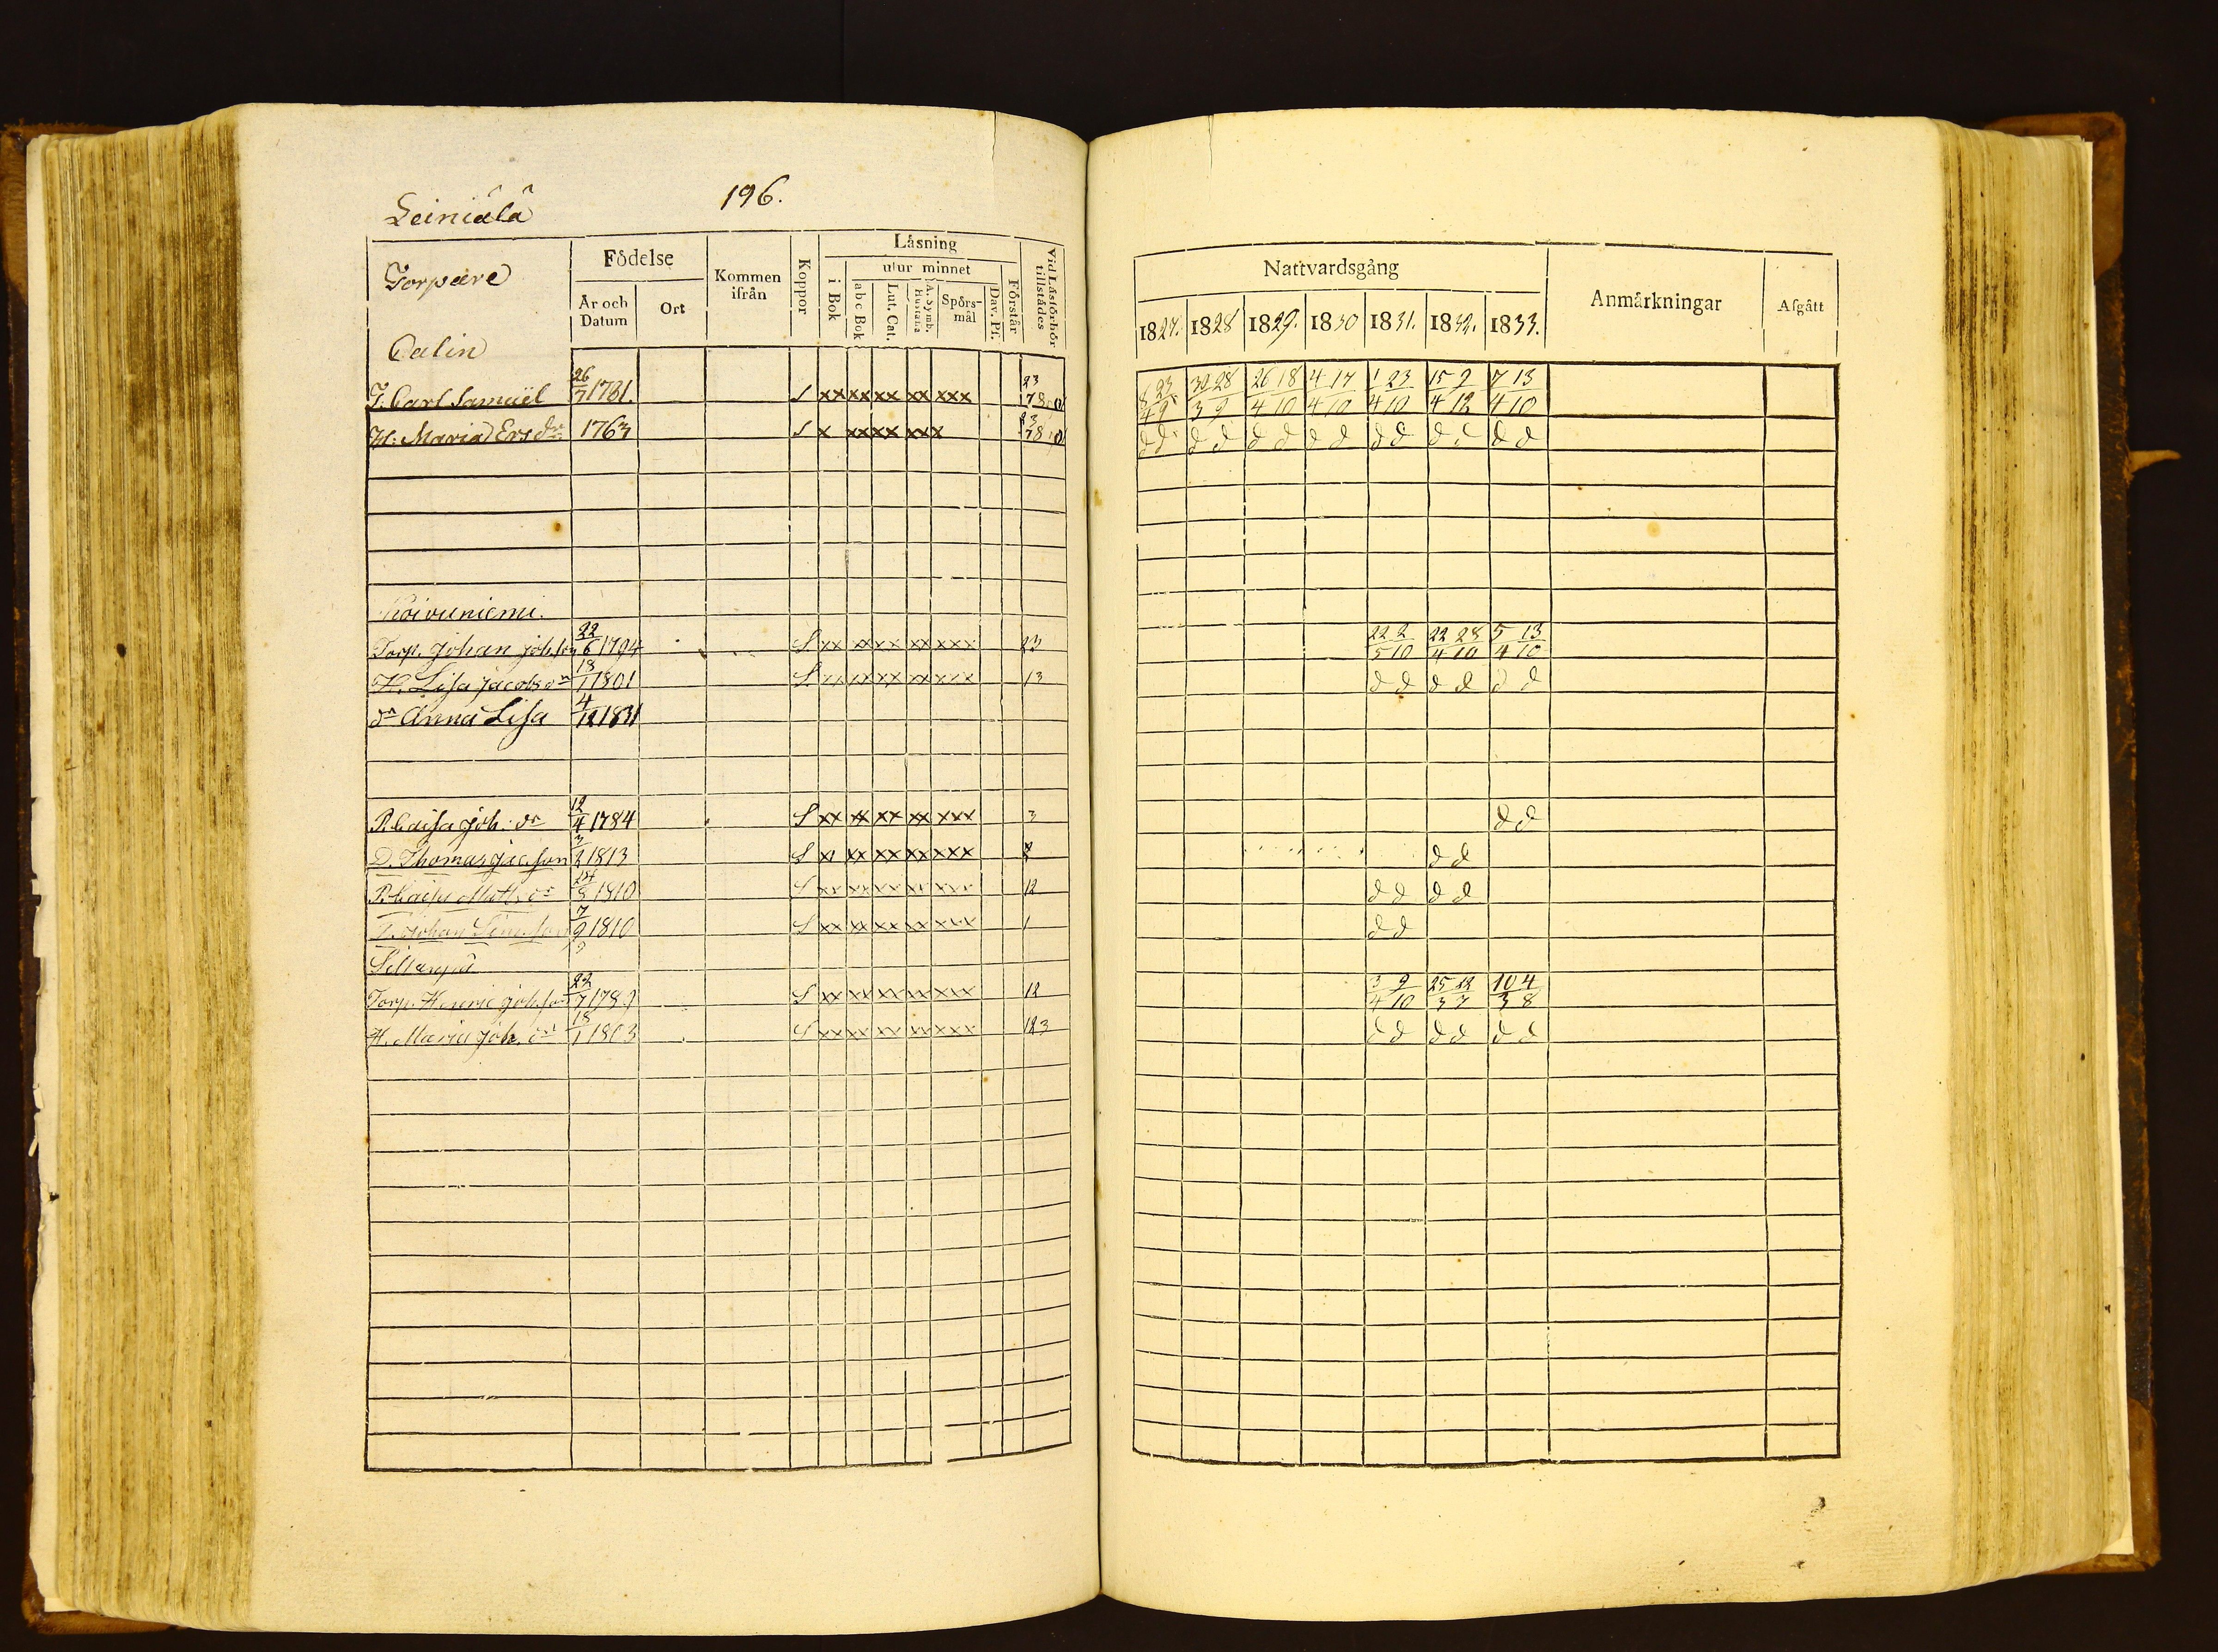 196.
Leiniälä
Torpare
Födelse
År och Datum
Ort
Kommen ifrån
Koppor
Läsning
i Bok
utur minnet
abc Bok
Lut. Cat.
A. Symb. Hustafla
Spörsmål
Dav. Ps.
Förstår
Vid Läsförhör tillstädes
Nattvardsgång
1827. 1828 1829. 1830 1831. 1832. 1833.
Anmärkningar
Afgått
Calin
T. Carl Samuel 26/7 1761. S xx xx xx xx xxx 23 78.0 8 23/4 9 30 28/3 9 26 18/4 10 4 17/4 10 1 23/4 10 15 9/4 12 7 13/4 10
H. Maria Ersdr 1763 S x xx xx xxx d d d d d d d d d d d d d d
Koivuniemi.
Torp. Johan Joh.son 22/6 1794 S xx xx xx xx xxx 23 22 2/5 10 22 28/4 10 5 13/4 10
H. Lisa Jacobsdr 18/1 1801 S xx xx xx xx xxx 13 d d d d d d
dr Anna Lisa 4/12 1831
P. Caisa Joh. dr 12/4 1784 S xx xx xx xx xxx 3 d d
D. Thomas Jac.son 3/2 1813 S xx xx xx xx xxx 2 d d
P. Caisa Matts dr 24/8 1810 S xx xx xx xx xxx 12 d d d d
D. Johan Sim.son 7/9 1810 S xx xx xx xx xxx 1 d d
Torp. Henric Joh.son 22/7 1789 S xx xx xx xx xxx 12 3 9/4 10 25 22/3 7 10 4/3 8
H. Maria Joh. dr 18/1 1803 S xx xx xx xx xxx 123 d d d d d d